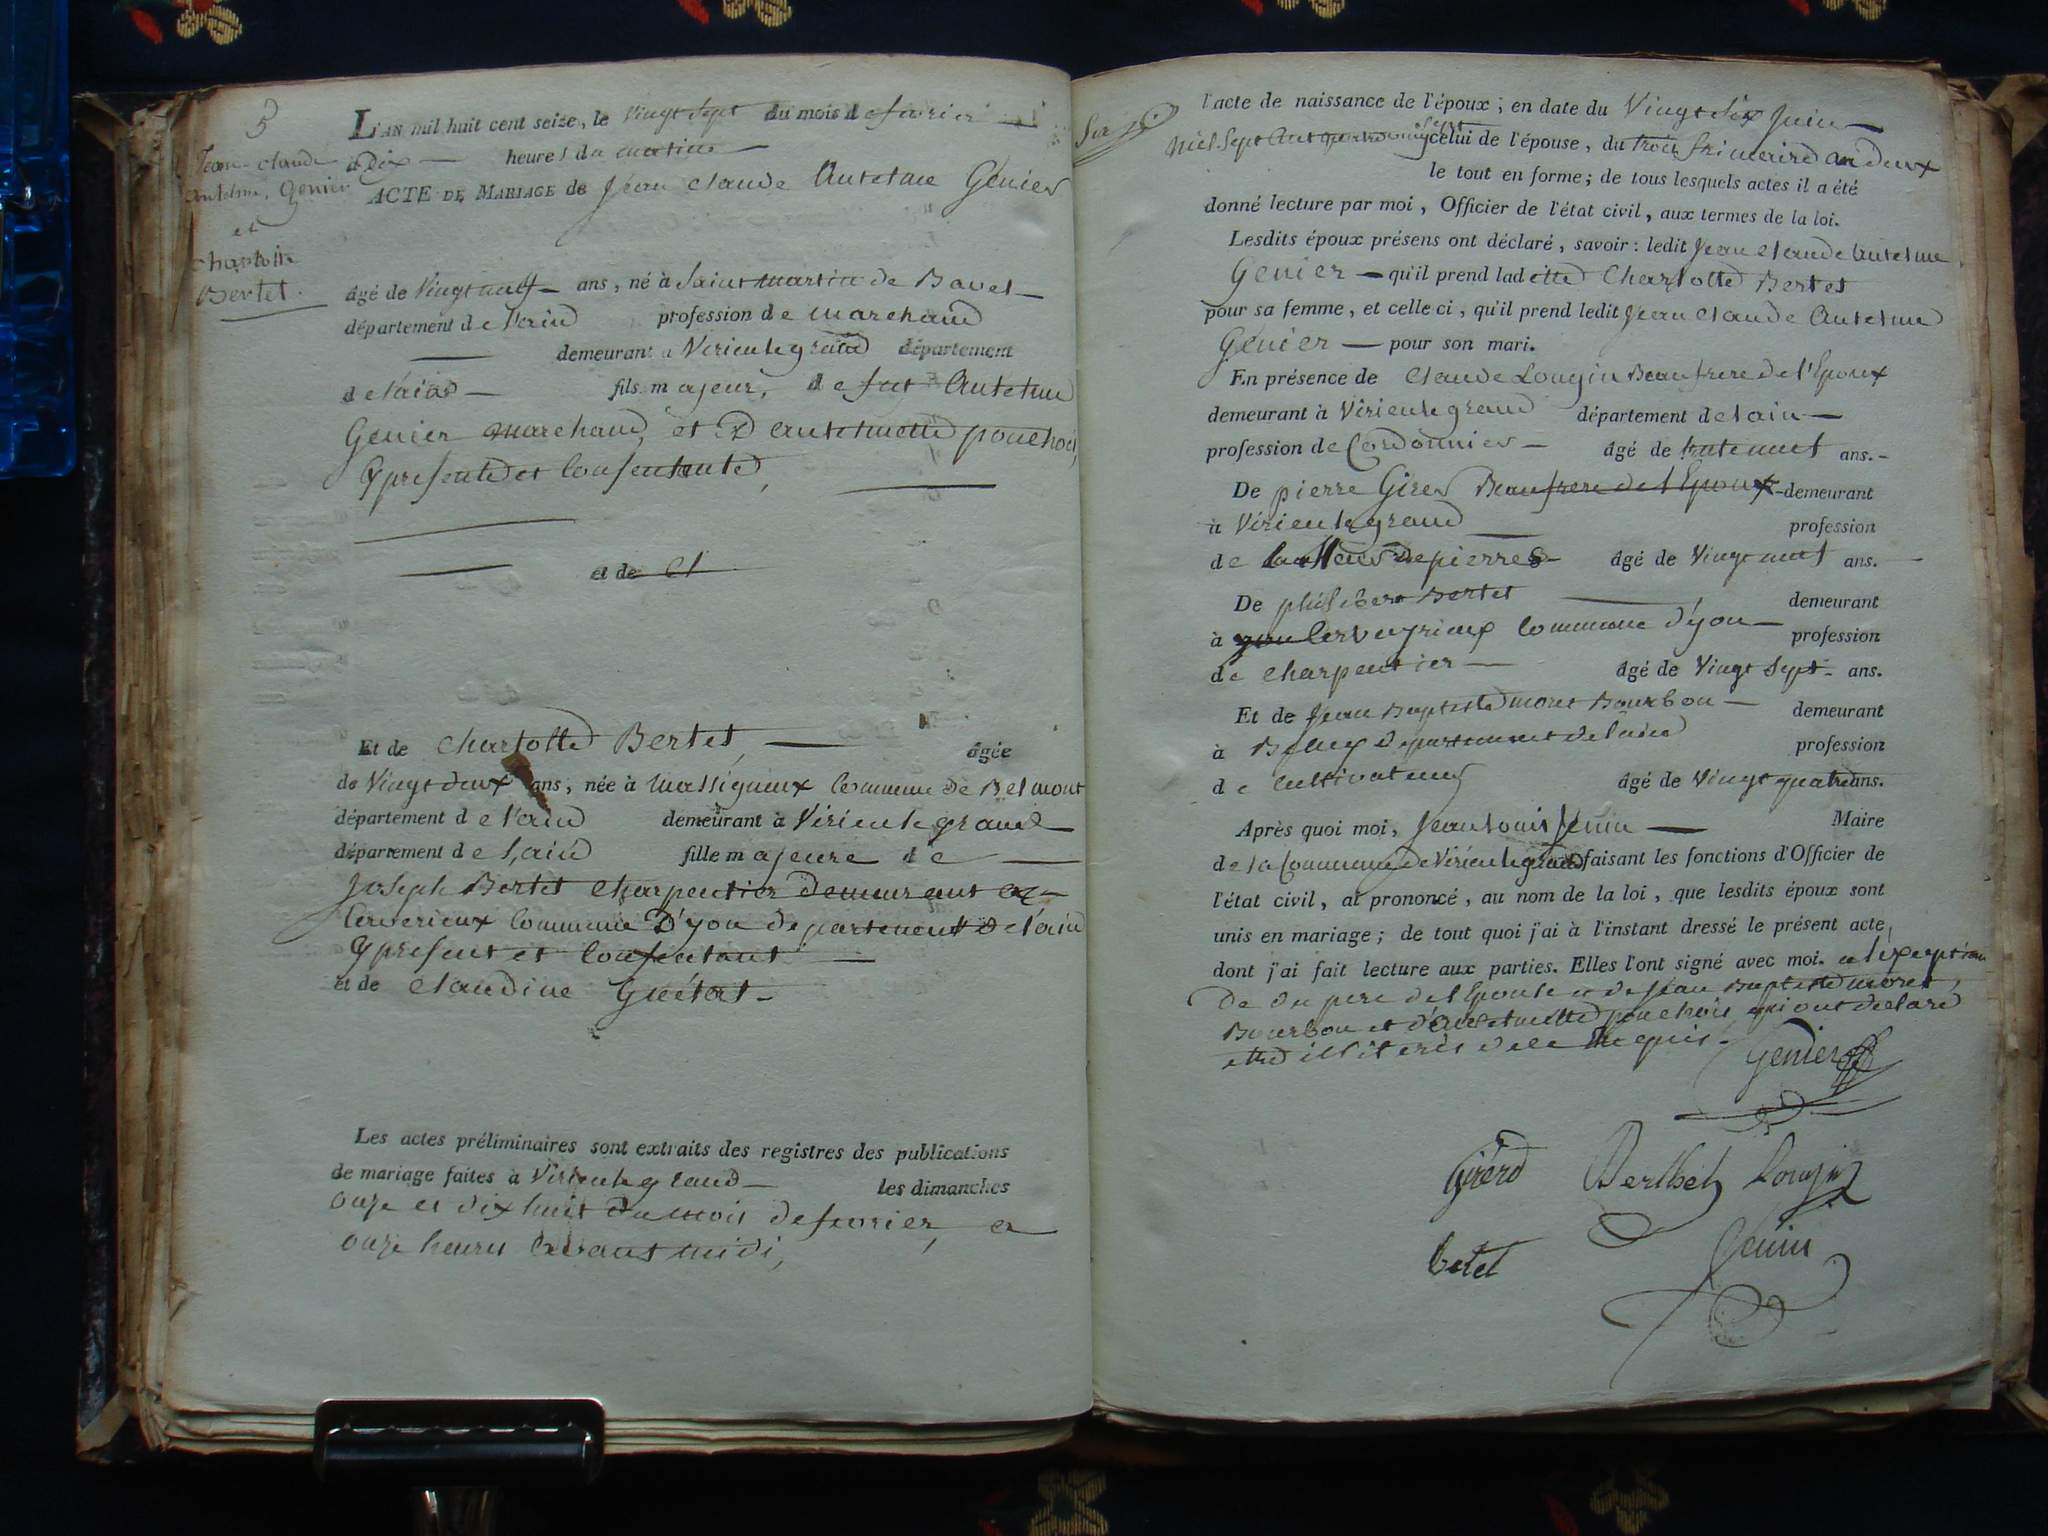 5
Jean-Claude
antelme, Genier
et
charlotte
Bertet.
L'AN mil huit cent seize, le vingt sept du mois de fevrier
à Dix heures du matin
ACTE DE MARIAGE de Jean Claude Antelme Genier
âgé de Vingt neuf ans, né à Saint martin de Bavel
département de l'ain profession de marchand
demeurant à Virieu le grand département
de l'ain fils majeur, de fut Antelme
Genier marchand, et D'antelmette pouchois,
Ypresente et Consentente,
et de et
Et de Charlotte Bertet, âgée
de Vingt deux ans, née à Massigneux Commune de Belmont
département de l'ain demeurant à Virieu le grand
département de l'ain fille majeure de
Joseph Bertet charpentier demeurant a
Cerverieux Commune D'yon departement De l'ain
Ypresent et Consentant
et de Claudine Guétat
Les actes préliminaires sont extraits des registres des publications
de mariage faites à Virieu le grand les dimanches
onze et dix huit du mois de fevrier, a
onze heures avant midi,
l'acte de naissance de l'époux; en date du Vingt six Juin
Mil Sept Cent quatre vingt sept celui de l'épouse, du trois frimaire an deux
le tout en forme; de tous lesquels actes il a été
donné lecture par moi, Officier de l'état civil, aux termes de la loi.
Lesdits époux présens ont déclaré, savoir: ledit Jean Claude Antelme
Genier qu'il prend ladite Charlotte Bertet
pour sa femme, et celle ci, qu'il prend ledit Jean Claude Antelme
Genier pour son mari.
En présence de Claude Longin Beaufrere de l'Epoux
demeurant à Virieu le grand département de l'ain
profession de Cordonnier âgé de trente neuf ans.
De pierre Girer Beaufrere de l'Epoux demeurant
à Virieu le grand profession
de tailleur De pierres âgé de Vingt neuf ans.
De philibert Bertet demeurant
à Cerveyrieux Commune d'yon profession
de Charpentier âgé de Vingt sept ans.
Et de Jean Baptiste moret Bourbon demeurant
à Belley Departement de l'ain profession
de Cultivateur âgé de Vingt quatre ans.
Après quoi moi, Jean Louis Jenin Maire
de la Commune de Virieu le grand faisant les fonctions d'Officier de
l'état civil, ai prononcé, au nom de la loi, que lesdits époux sont
unis en mariage; de tout quoi j'ai à l'instant dressé le présent acte,
dont j'ai fait lecture aux parties. Elles l'ont signé avec moi. a l'exception
De du pere de l'Epouse et de Jean Baptiste moret
Bourbon et d'antelmette pouchois, qui ont déclaré
etre illiterés de ce requis.
Genier
Girerd Berthet Longin
betet Jenin